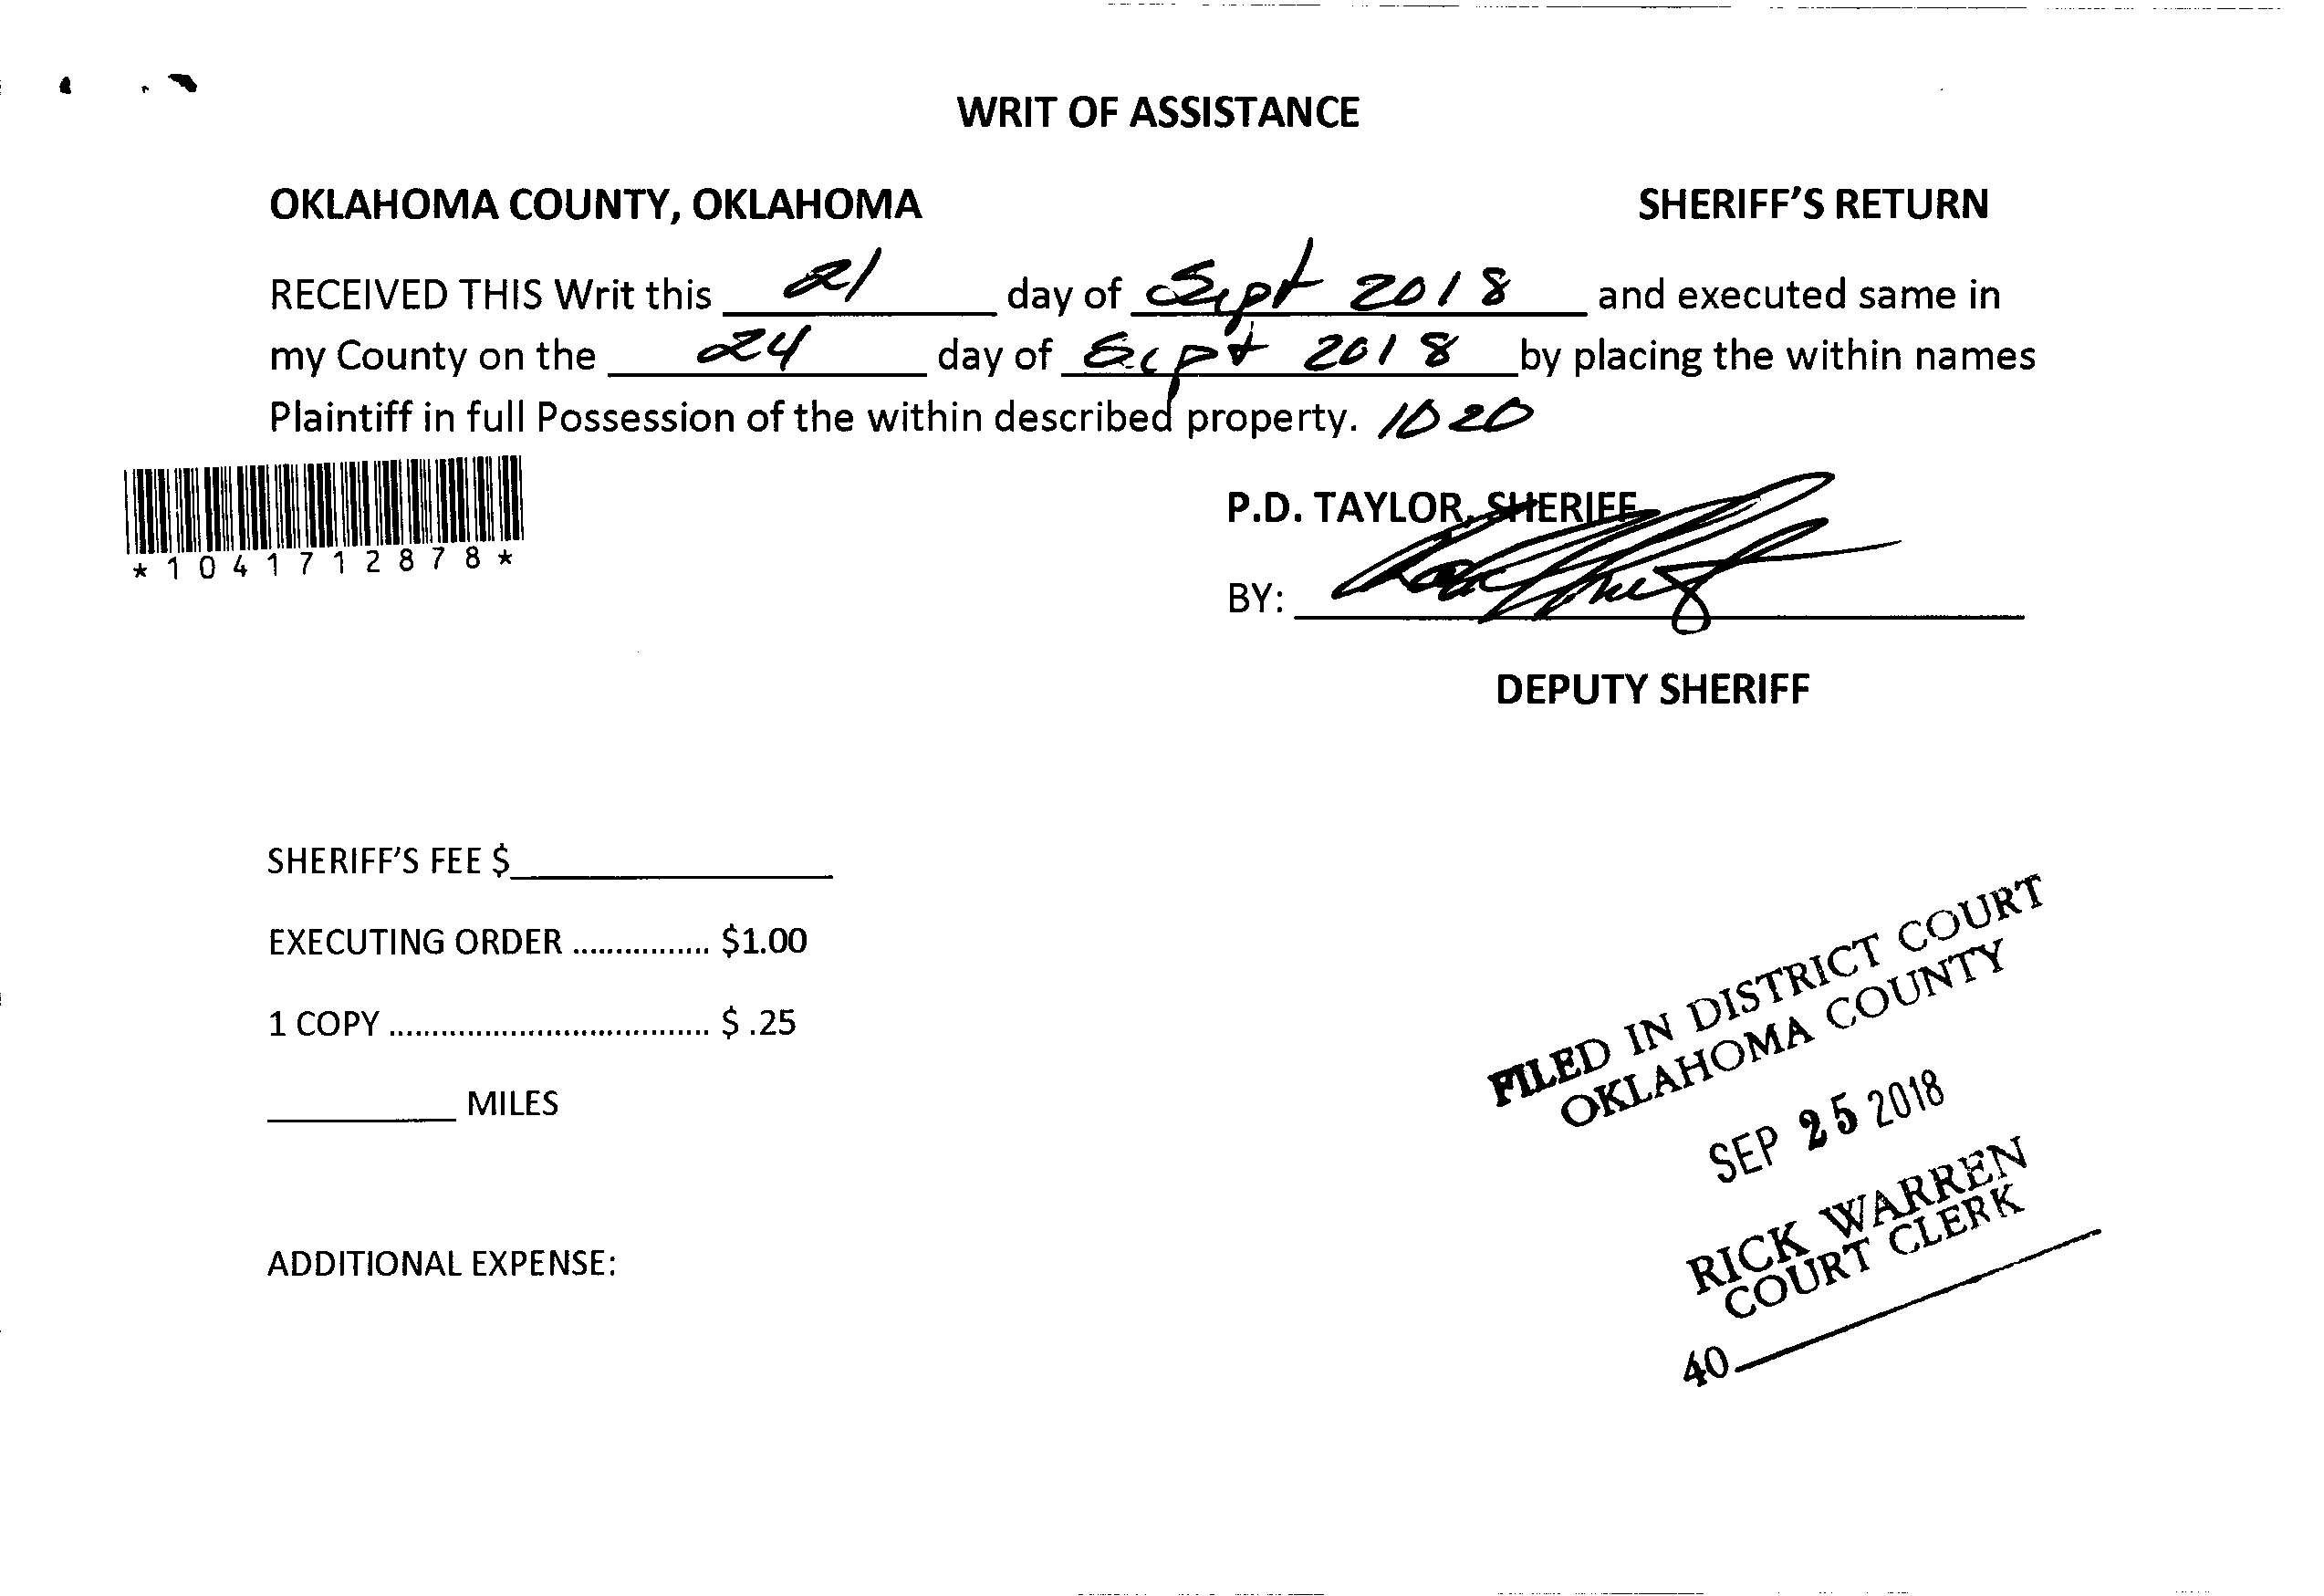 WRIT OF ASSISTANCE
OKLAHOMA COUNTY, OKLAHOMA SHERIFF'S RETURN
RECEIVED THIS Writ this 21 day of Sept 2018 and executed same in
my County on the 24 day of Sept 2018 by placing the within names
Plaintiff in full Possession of the within described property. 1020
*1041712878*
P.D. TAYLOR, SHERIFF
BY:
DEPUTY SHERIFF
SHERIFF'S FEE $
EXECUTING ORDER ................ $1.00
1 COPY ..................................... $ .25
MILES
ADDITIONAL EXPENSE:
FILED IN DISTRICT COURT
OKLAHOMA COUNTY
SEP 25 2018
RICK WARREN
COURT CLERK
40